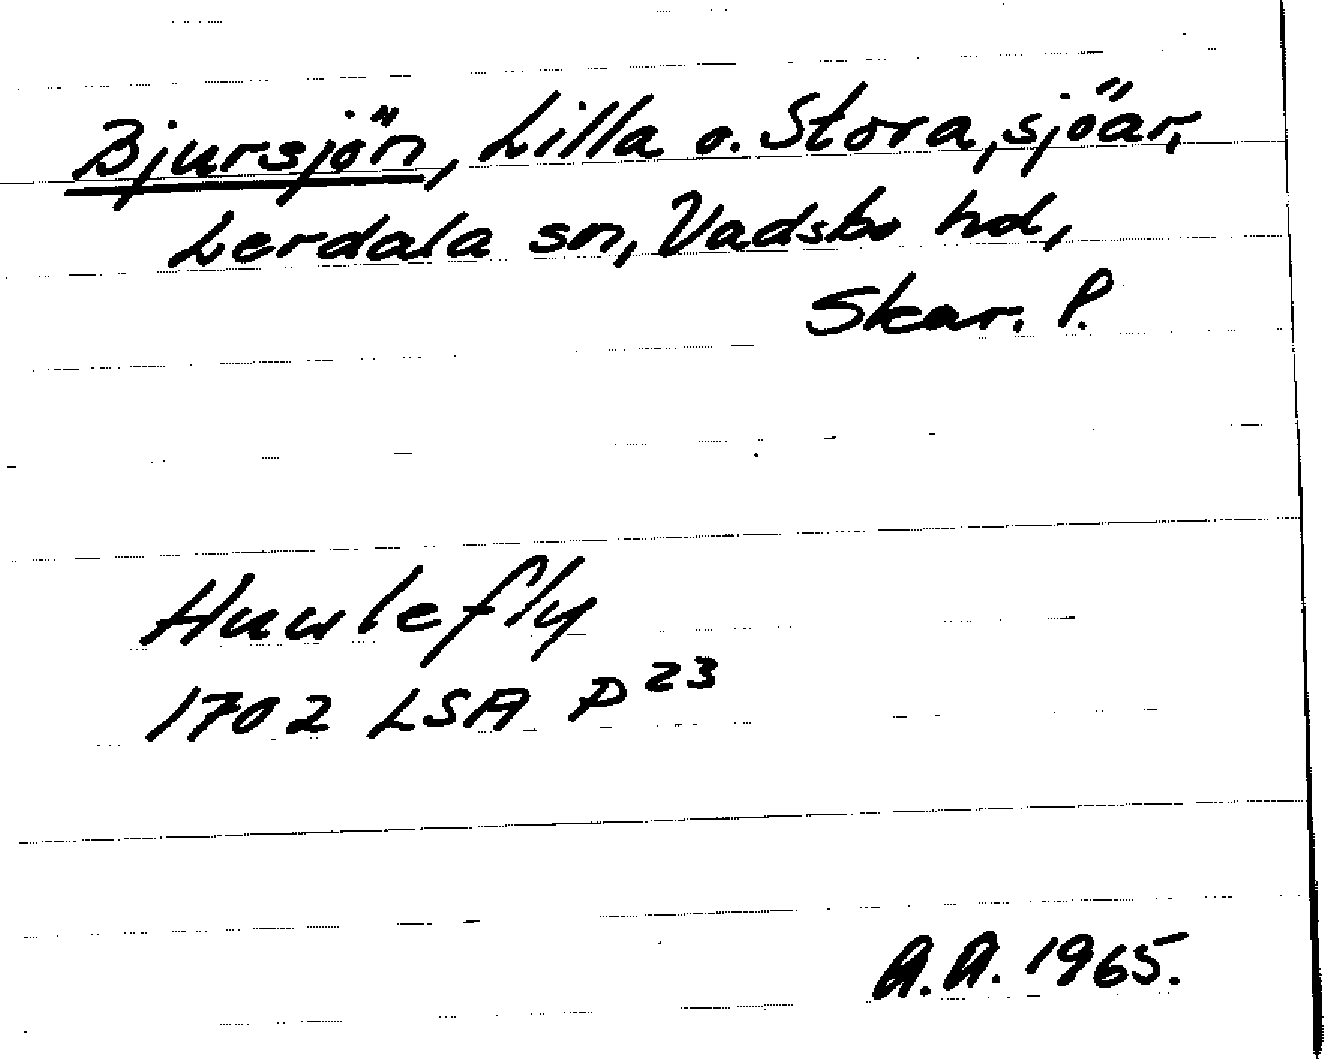 Bjursjön, Lilla o. Stora, sjöar,
Lerdala sn, Vadsbo hd,
Skar. P.
Huulefly
1702 LSA P 23
A.A. 1965.